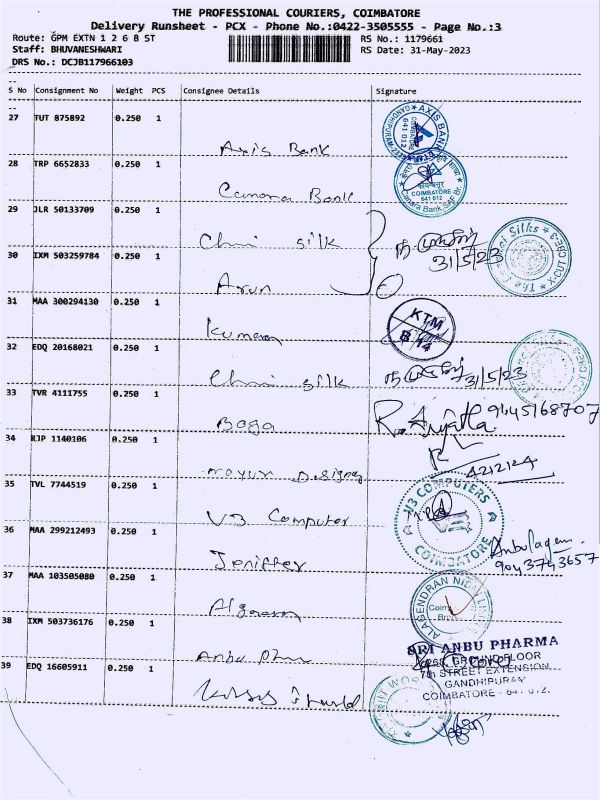 THE PROFESSIONAL COURIERS, COIMBATORE
Delivery Runsheet - PCX - Phone No.:0422-3505555 - Page No.:3
Route: GPM EXTN 1 2 6 8 ST RS No.: 1179661
Staff: BHUVANESHWARI RS Date: 31-May-2023
DRS No.: DCJB117966103
S No Consignment No Weight PCS Consignee Details Signature
27 TUT 875892 0.250 1 Axis Bank
AXIS BANK
COIMBATORE
641 012
28 TRP 6652833 0.250 1 Canara Bank
COIMBATORE
641 012
Canara Bank
29 JLR 50133709 0.250 1 silk
31/5/23
30 IXM 503259784 0.250 1 Arun
31 MAA 300294130 0.250 1 Kumaran
KTM
32 EDQ 20168021 0.250 1 silk
31/5/23
33 TVR 4111755 0.250 1 Boga
9145168707
34 RJP 1140106 0.250 1 mayur Designs
35 TVL 7744519 0.250 1 V3 Computer
V3 COMPUTERS
COIMBATORE
36 MAA 299212493 0.250 1 Jeniffer
9043743657
37 MAA 103505080 0.250 1
38 IXM 503736176 0.250 1 Anbu
SRI ANBU PHARMA
GROUND FLOOR
7th STREET EXTENSION
GANDHIPURAM
COIMBATORE - 641 012.
39 EDQ 16605911 0.250 1